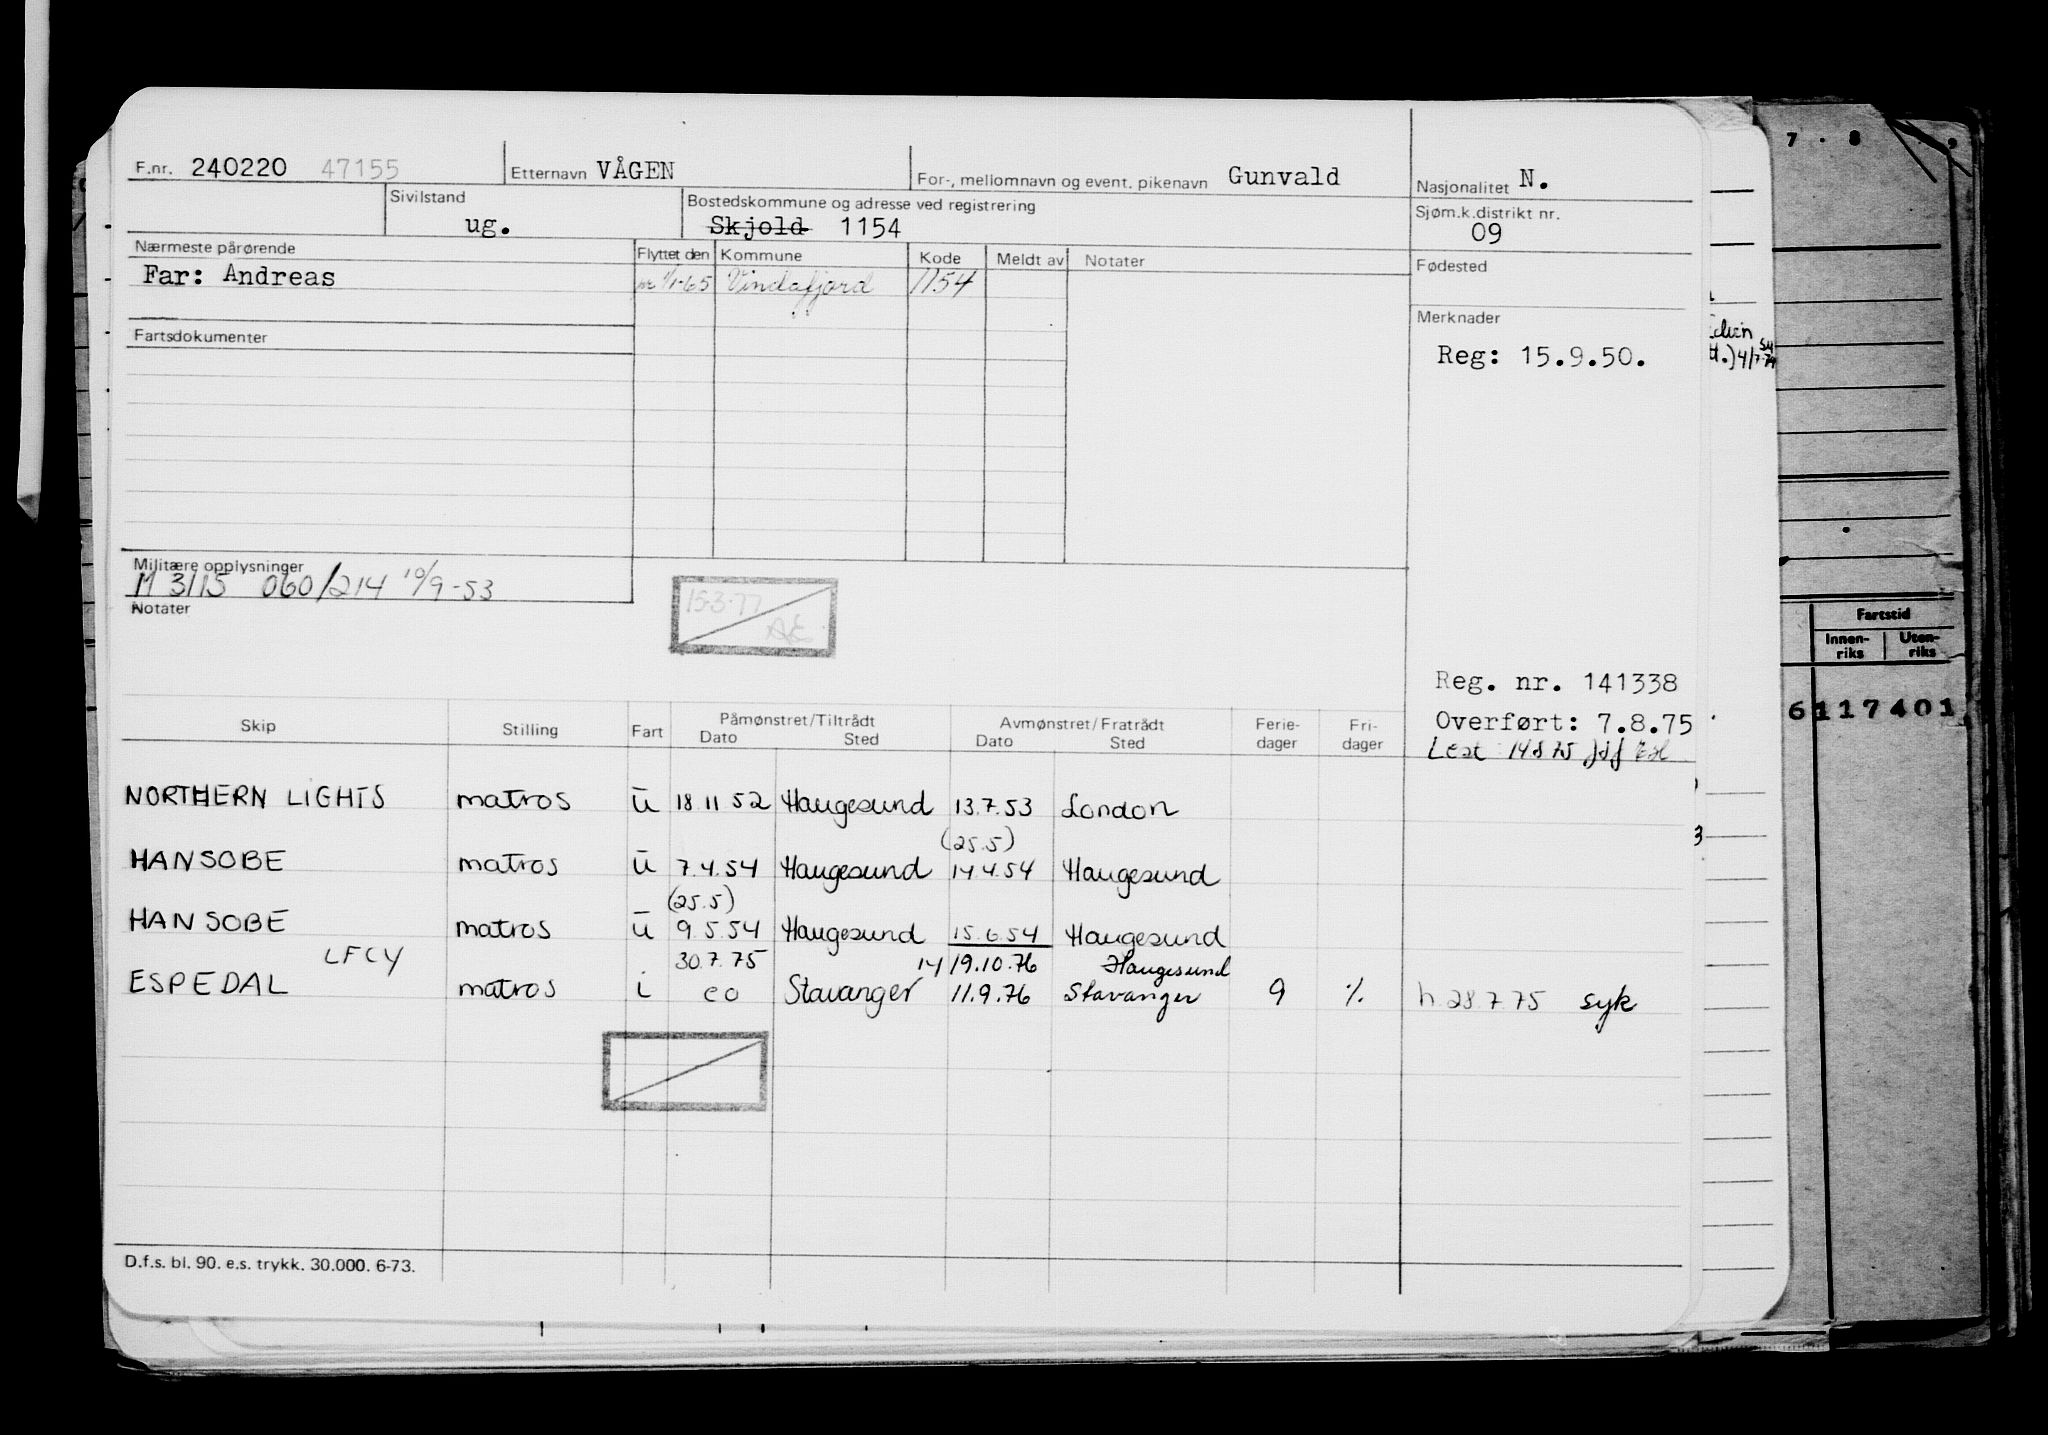 F.nr. 240220 47155 Etternavn VÅGEN For-, mellomnavn og event. pikenavn Gunvald Nasjonalitet N.
Sivilstand ug. Bostedskommune og adresse ved registrering Skjold 1154 Sjøm.k.distrikt nr. 09
Nærmeste pårørende Flyttet den Kommune Kode Meldt av Notater Fødested
Far: Andreas 1/1-65 Vindafjord 1154
Fartsdokumenter Merknader
Reg: 15.9.50.
Militære opplysninger
M 3115 060/214 10/9-53
Notater
15.3.77
AE
Reg. nr. 141338
Overført: 7.8.75
Skip Stilling Fart Påmønstret/Tiltrådt Dato Sted Avmønstret/Fratrådt Dato Sted Ferie-dager Fri-dager
Lest 14 8 75
NORTHERN LIGHTS matros u 18 11 52 Haugesund 13.7.53 London
(25.5)
HANSOBE matros u 7.4.54 Haugesund 14.4.54 Haugesund
(25.5)
HANSOBE matros u 9.5.54 Haugesund 15.6.54 Haugesund
LFCY 30.7.75 14 19.10.76 Haugesund
ESPEDAL matros i eo Stavanger 11.9.76 Stavanger 9 % h 28 7 75 syk
D.f.s. bl. 90. e.s. trykk. 30.000. 6-73.
7 . 8 . 9
4/7-79
Fartstid
Innen-riks Uten-riks
6117401
3